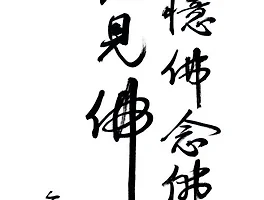 憶佛念佛
見佛